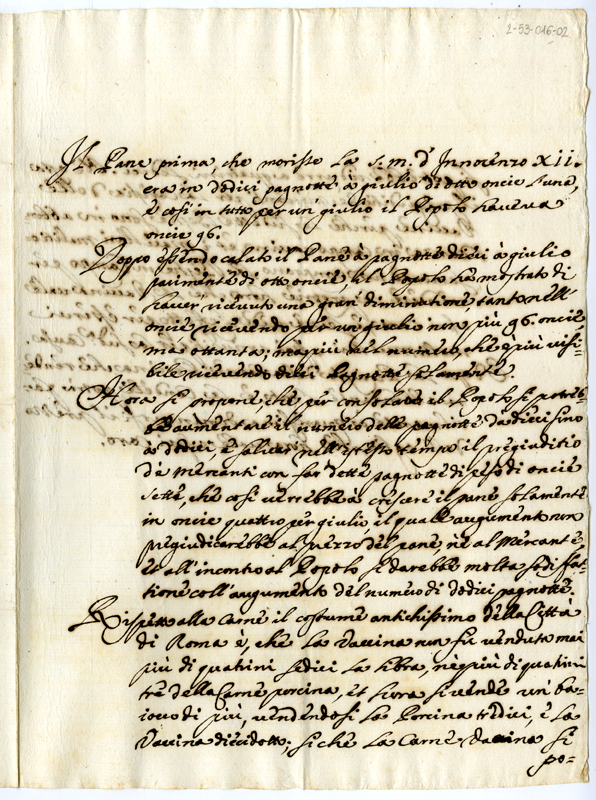 2-53-016-02
Il Pane prima, che morisse la s. m. d'Innocenzo XII.
era in dodici pagnotte à giulio di otto oncie l'una,
e così in tutto per un giulio il Popolo haveva
oncie 96.
Doppo essendo calato il Pane à pagnotte dieci à giulio
parimente di ott'oncie, il Popolo hà mostrato di
haver ricevuto una gran diminutione, tanto nell'
oncie, ricevendo per un giulio non più 96. oncie,
mà ottanta; mà più nel numero, che è più visi=
bile ricevendo dieci Pagnotte solamente.
Hora si propone, che per consolare il Popolo si potreb=
be aumentare il numero delle pagnotte da dieci sino
à dodici, e salvar nell'istesso tempo il pregiuditio
de Mercanti con far dette pagnotte di peso di oncie
sette, che così verrebbe à crescere il pane solamente
in oncie quattro per giulio, il quale augumento non
pregiudicarebbe al prezzo del pane, nè al Mercante
et all'incontro al Popolo si darebbe molta sodisfat=
tione coll'augumento del numero di dodici pagnotte.
Rispetto alla Carne il costume antichissimo della Città
di Roma è, che la Vaccina non fù venduta mai
più di quatrini sedici la libra, nè più di quatrini
tre della Carne porcina, et hora si vende un ba=
iocco di più, vendendosi la Porcina tredici, e la
Vaccina dieciotto; si che la Carne Vaccina si
po=